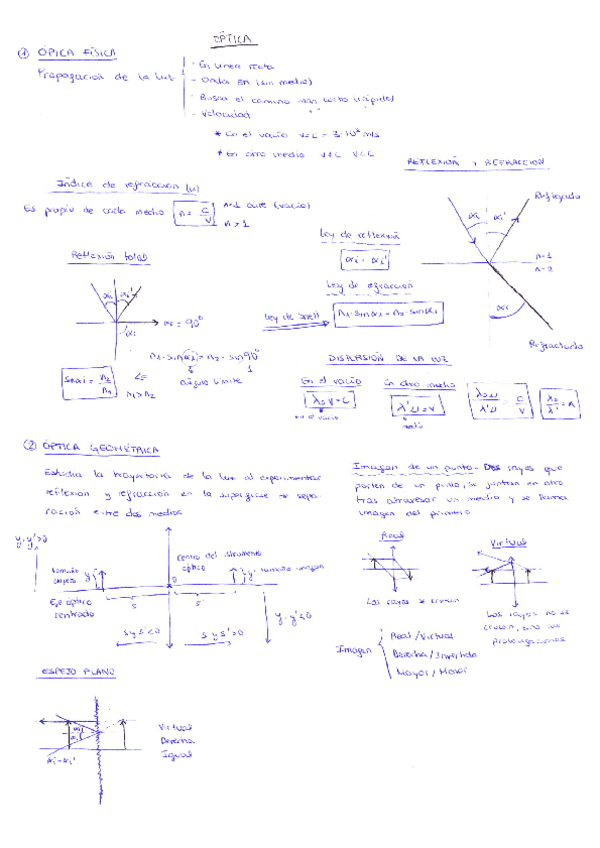 ÓPTICA
① ÓPICA FÍSICA
Propagación de la luz
- En línea recta
- Onda EM (sin medio)
- Busca el camino más corto (rápido)
- Velocidad
* En el vacío v=c = 3·10⁸ m/s
* En otro medio v≠c v<c
REFLEXIÓN Y REFRACCIÓN
Índice de refracción (n)
Es propio de cada medio n = c/v
n=1 aire (vacío)
n>1
Reflejado
αi αi'
Ley de reflexión
αi = αi'
n=1
n=2
Ley de refracción
Ley de Snell
Refractado
Reflexión total
αi αi'
αr = 90º
n₁·sin(αi) = n₂·sin90º
ángulo límite
1
sin αi = n₂/n₁
n₁>n₂
DISPERSIÓN DE LA LUZ
En el vacío
En otro medio
λ'ν=v
medio
λ₀ν/λ'ν = c/v
λ₀/λ' = n
② ÓPTICA GEOMÉTRICA
Estudia la trayectoria de la luz al experimentar
reflexión y refracción en la superficie de sepa-
ración entre dos medios
Imagen de un punto - Dos rayos que
parten de un punto, se juntan en otro
tras atravesar un medio y se llama
imagen del primero
y, y'>0
tamaño objeto y
centro del instrumento
óptico
O
y' tamaño imagen
Eje óptico
centrado
s
s'
s y s'<0
s y s'>0
y, y'<0
Real
Los rayos se cruzan
Virtual
Los rayos no se
cruzan, sino sus
prolongaciones
Imagen
Real / Virtual
Derecha / Invertida
Mayor / Menor
ESPEJO PLANO
αi=αi'
Virtual
Derecha
Igual